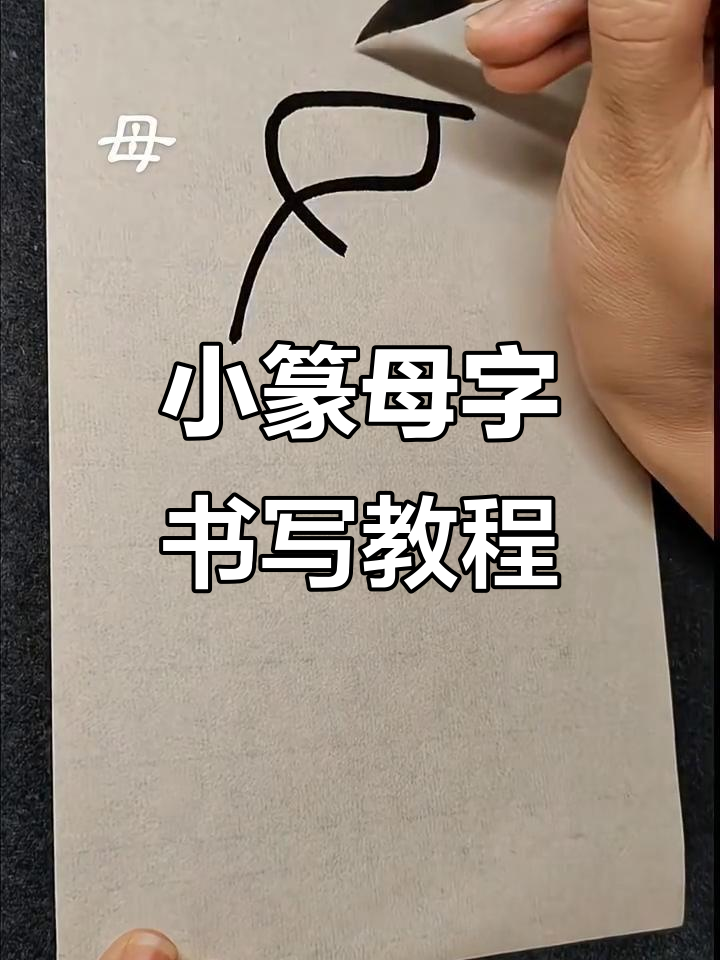 母
小篆母字
书写教程